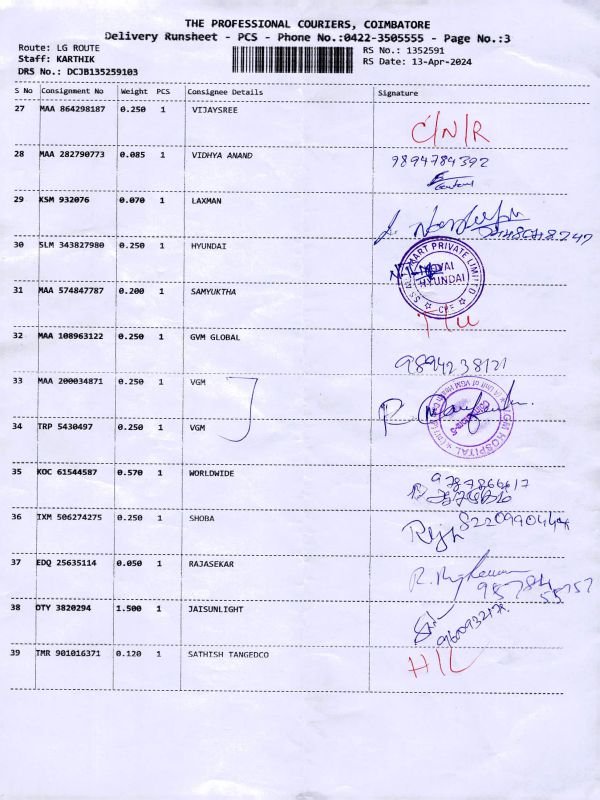 THE PROFESSIONAL COURIERS, COIMBATORE
Delivery Runsheet - PCS - Phone No.:0422-3505555 - Page No.:3
Route: LG ROUTE
RS No.: 1352591
Staff: KARTHIK
RS Date: 13-Apr-2024
DRS No.: DCJB135259103
S No Consignment No Weight PCS Consignee Details Signature
27 MAA 864298187 0.250 1 VIJAYSREE
C/N/R
28 MAA 282790773 0.085 1 VIDHYA ANAND 9894784392
29 KSM 932076 0.070 1 LAXMAN
30 SLM 343827980 0.250 1 HYUNDAI
HYUNDAI
31 MAA 574847787 0.200 1 SAMYUKTHA
32 MAA 108963122 0.250 1 GVM GLOBAL
9894238121
33 MAA 200034871 0.250 1 VGM
VGM HOSPITAL
34 TRP 5430497 0.250 1 VGM
35 KOC 61544587 0.570 1 WORLDWIDE
36 IXM 506274275 0.250 1 SHOBA
37 EDQ 25635114 0.050 1 RAJASEKAR
38 OTY 3820294 1.500 1 JAISUNLIGHT
39 TMR 901016371 0.120 1 SATHISH TANGEDCO